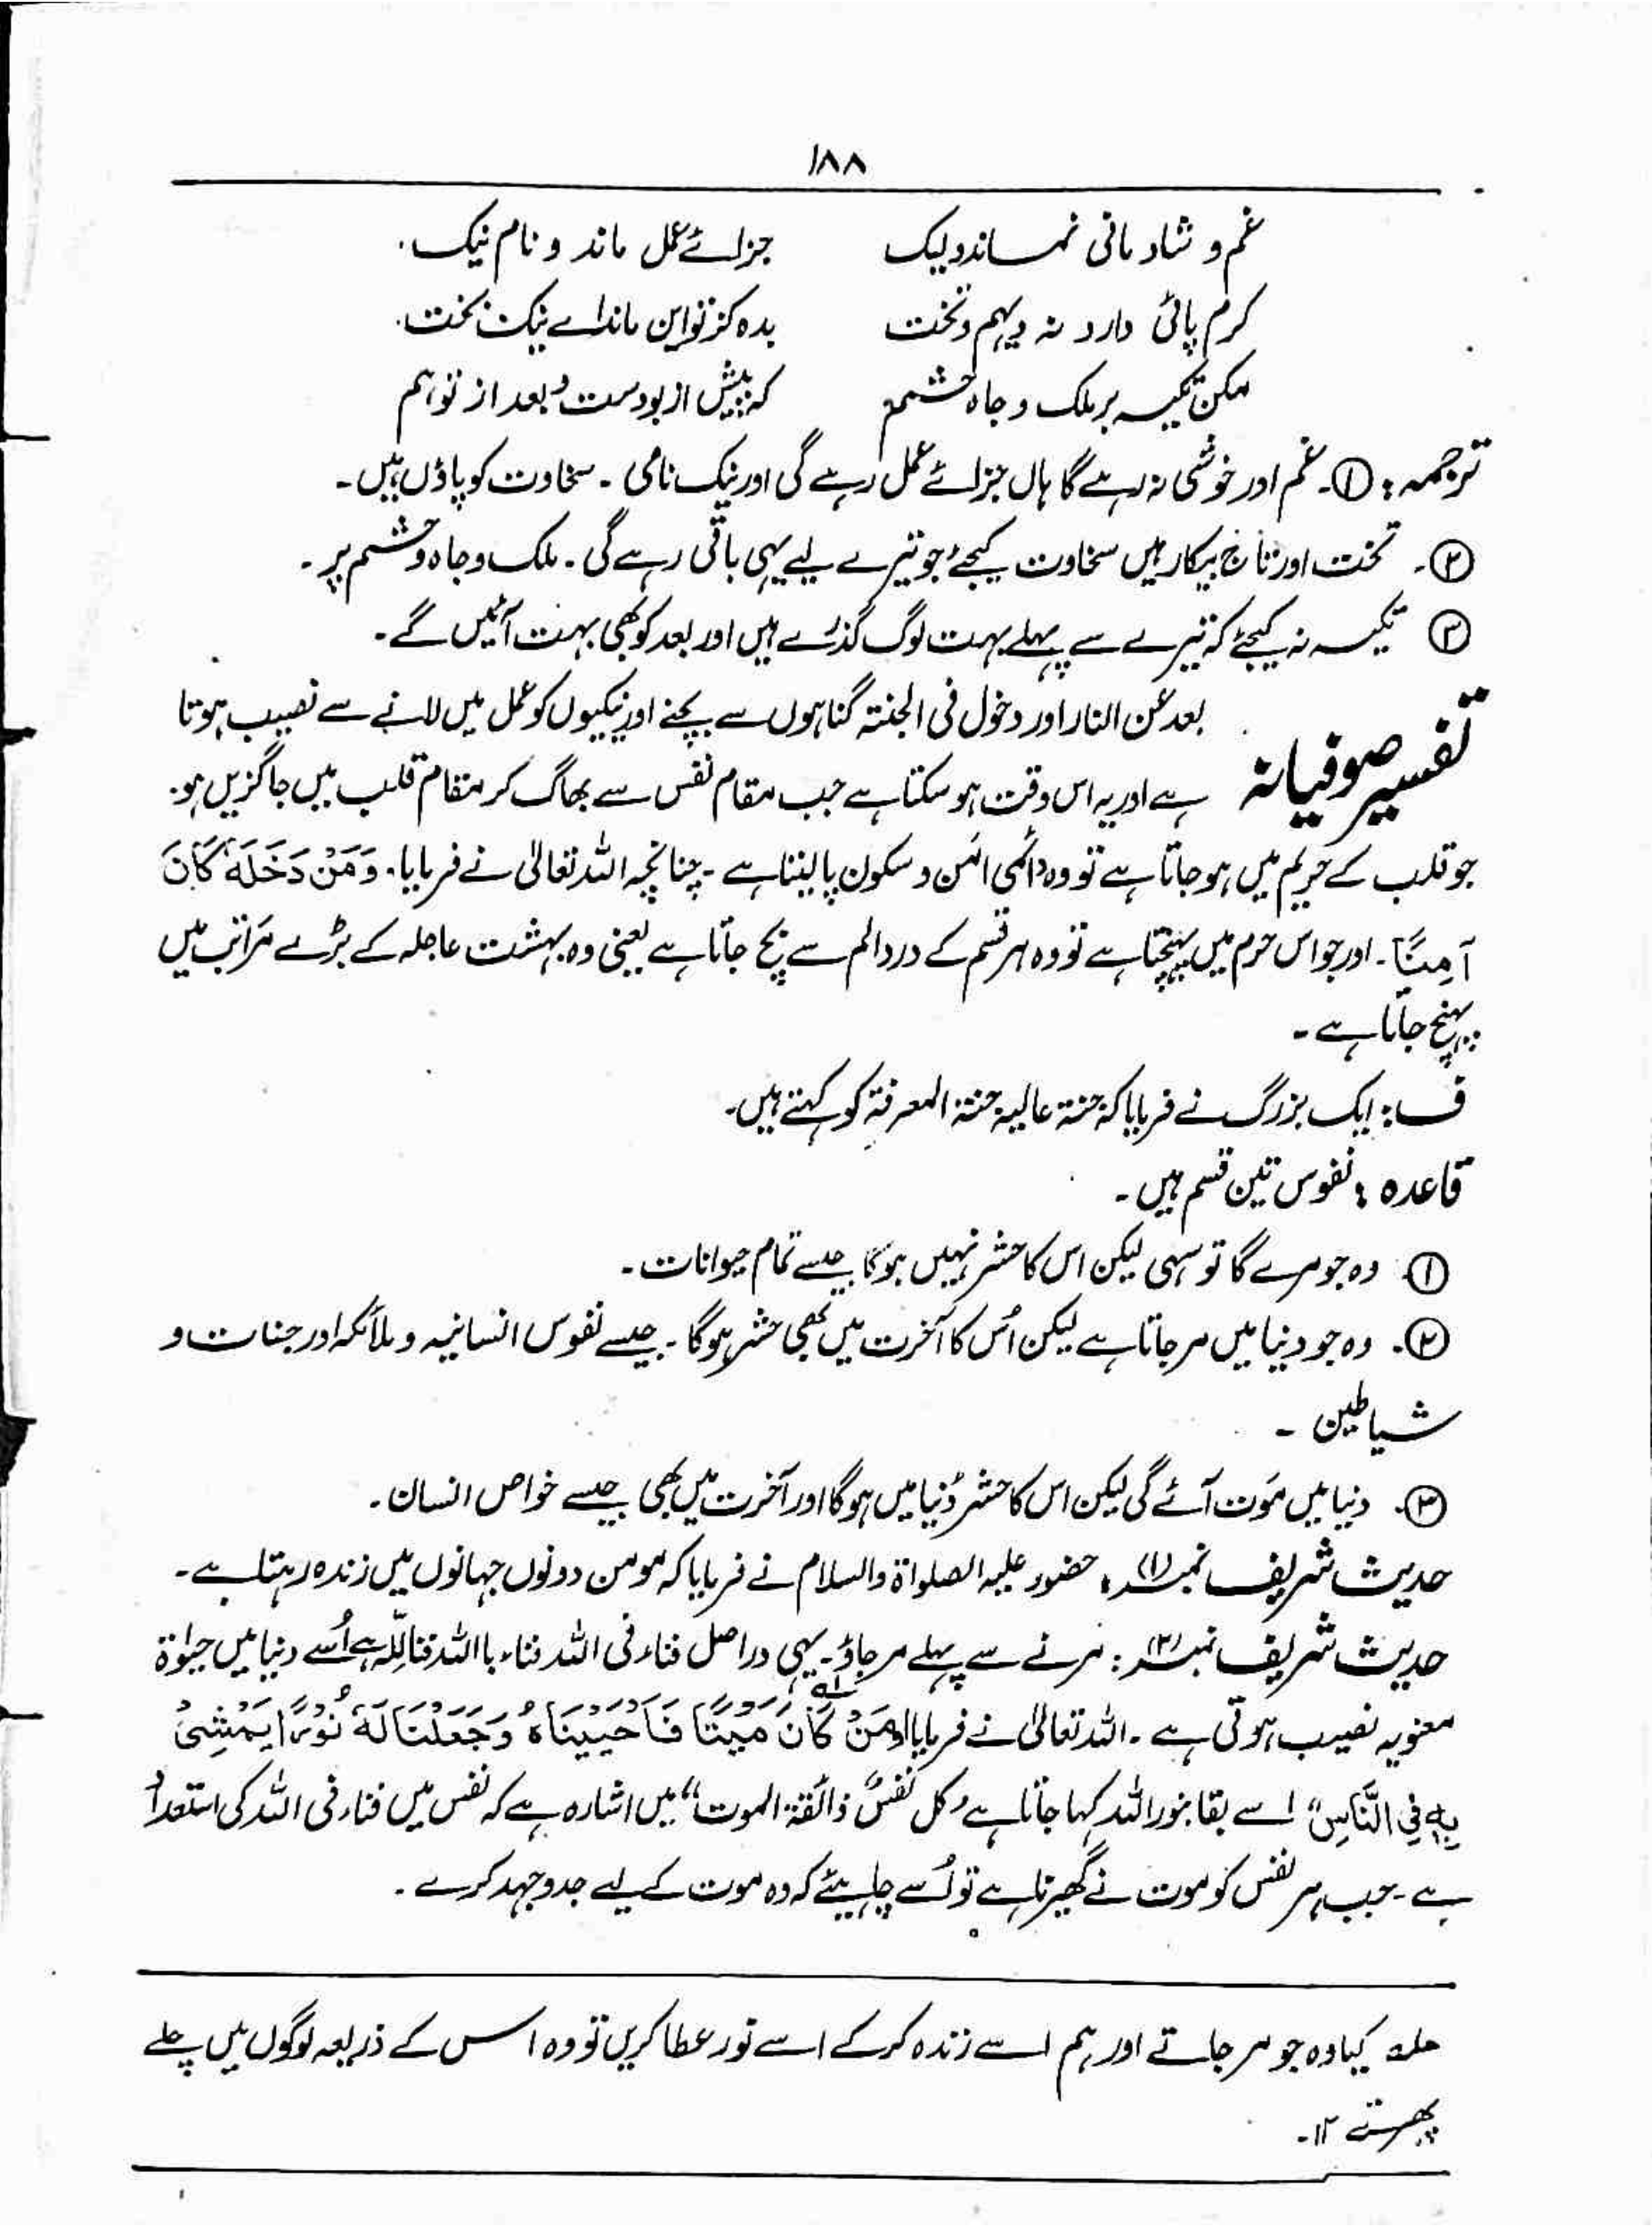 ۱۸۸
غم و شادمانی نماند ولیک جزائے عمل ماند و نام نیک.
کرم پائی دارد نہ دیہم وتخت بدہ کز تو این ماند اے نیک بخت.
مکن تکیہ بر ملک و جاہ حشم کہ پیش از بودست و بعد از تو ہم
ترجمہ: ①۔ غم اور خوشی نہ رہے گا ہاں جزائے عمل رہے گی اور نیک نامی ۔ سخاوت کو پاؤں ہیں ۔
②۔ تخت اور تاج بیکار ہیں سخاوت کیجئے جو تیرے لیے یہی باقی رہے گی ۔ ملک وجاہ وحشم پر ۔
② تکیہ نہ کیجئے کہ تیرے سے پہلے بہت لوگ گذرے ہیں اور بعد کو بھی بہت آئیں گے ۔
تفسیر صوفیانہ بعد عن النار اور دخول فی الجنتہ گناہوں سے بچنے اور نیکیوں کو عمل میں لانے سے نصیب ہوتا
ہے اور یہ اس وقت ہو سکتا ہے جب مقام نفس سے بھاگ کر مقام قلب میں جاگزیں ہو.
جو قلب کے حریم میں ہو جاتا ہے تو وہ دائمی امن و سکون پا لیتا ہے ۔ چنانچہ اللہ تعالیٰ نے فرمایا. وَمَنْ دَخَلَهٗ كَانَ
آمِنًا ۔ اور جو اس حرم میں پہنچتا ہے تو وہ ہر قسم کے درد الم سے بچ جاتا ہے یعنی وہ بہشت عاجلہ کے بڑے مراتب میں
پہنچ جاتا ہے ۔
ف : ایک بزرگ نے فرمایا کہ جنۃ عالیۃ جنۃ المعرفۃ کو کہتے ہیں.
قاعدہ : نفوس تین قسم ہیں ۔
① وہ جو مرے گا تو سہی لیکن اس کا حشر نہیں ہوگا جیسے تمام حیوانات ۔
②۔ وہ جو دنیا میں مر جاتا ہے لیکن اُس کا آخرت میں بھی حشر ہوگا ۔ جیسے نفوس انسانیہ و ملائکہ اور جنات و
شیاطین ۔
③۔ دنیا میں مَوت آئے گی لیکن اس کا حشر دُنیا میں ہوگا اور آخرت میں بھی جیسے خواص انسان ۔
حدیث شریف نمبر(۱) : حضور علیہ الصلواۃ والسلام نے فرمایا کہ مومن دونوں جہانوں میں زندہ رہتا ہے ۔
حدیث شریف نمبر(۲) : مرنے سے پہلے مر جاؤ ۔ یہی دراصل فناء فی اللہ فناء باللہ فناللّٰہ ہے اُسے دنیا میں حیواۃ
معنویہ نصیب ہوتی ہے ۔ اللہ تعالیٰ نے فرمایا اومَنْ كَانَ مَيْتًا فَاَحْيَيْنَاهُ وَجَعَلْنَا لَهٗ نُوْرًا يَمْشِیْ
بِهٖ فِی النَّاسِ" اسے بقا بنور اللہ کہا جاتا ہے "کل نفسٌ ذائقۃ الموت" میں اشارہ ہے کہ نفس میں فناء فی اللہ کی استعداد
ہے ۔ جب ہر نفس کو موت نے گھیرنا ہے تو اُسے چاہیئے کہ وہ موت کے لیے جدوجہد کرے ۔
علہ کیا وہ جو مر جاتے اور ہم اسے زندہ کر کے اسے نور عطا کریں تو وہ اس کے ذریعہ لوگوں میں چلے
پھرتے ۱۲ ۔